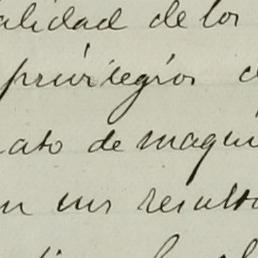 alidad de los
privilegios
ato de maqui
en sus resulta